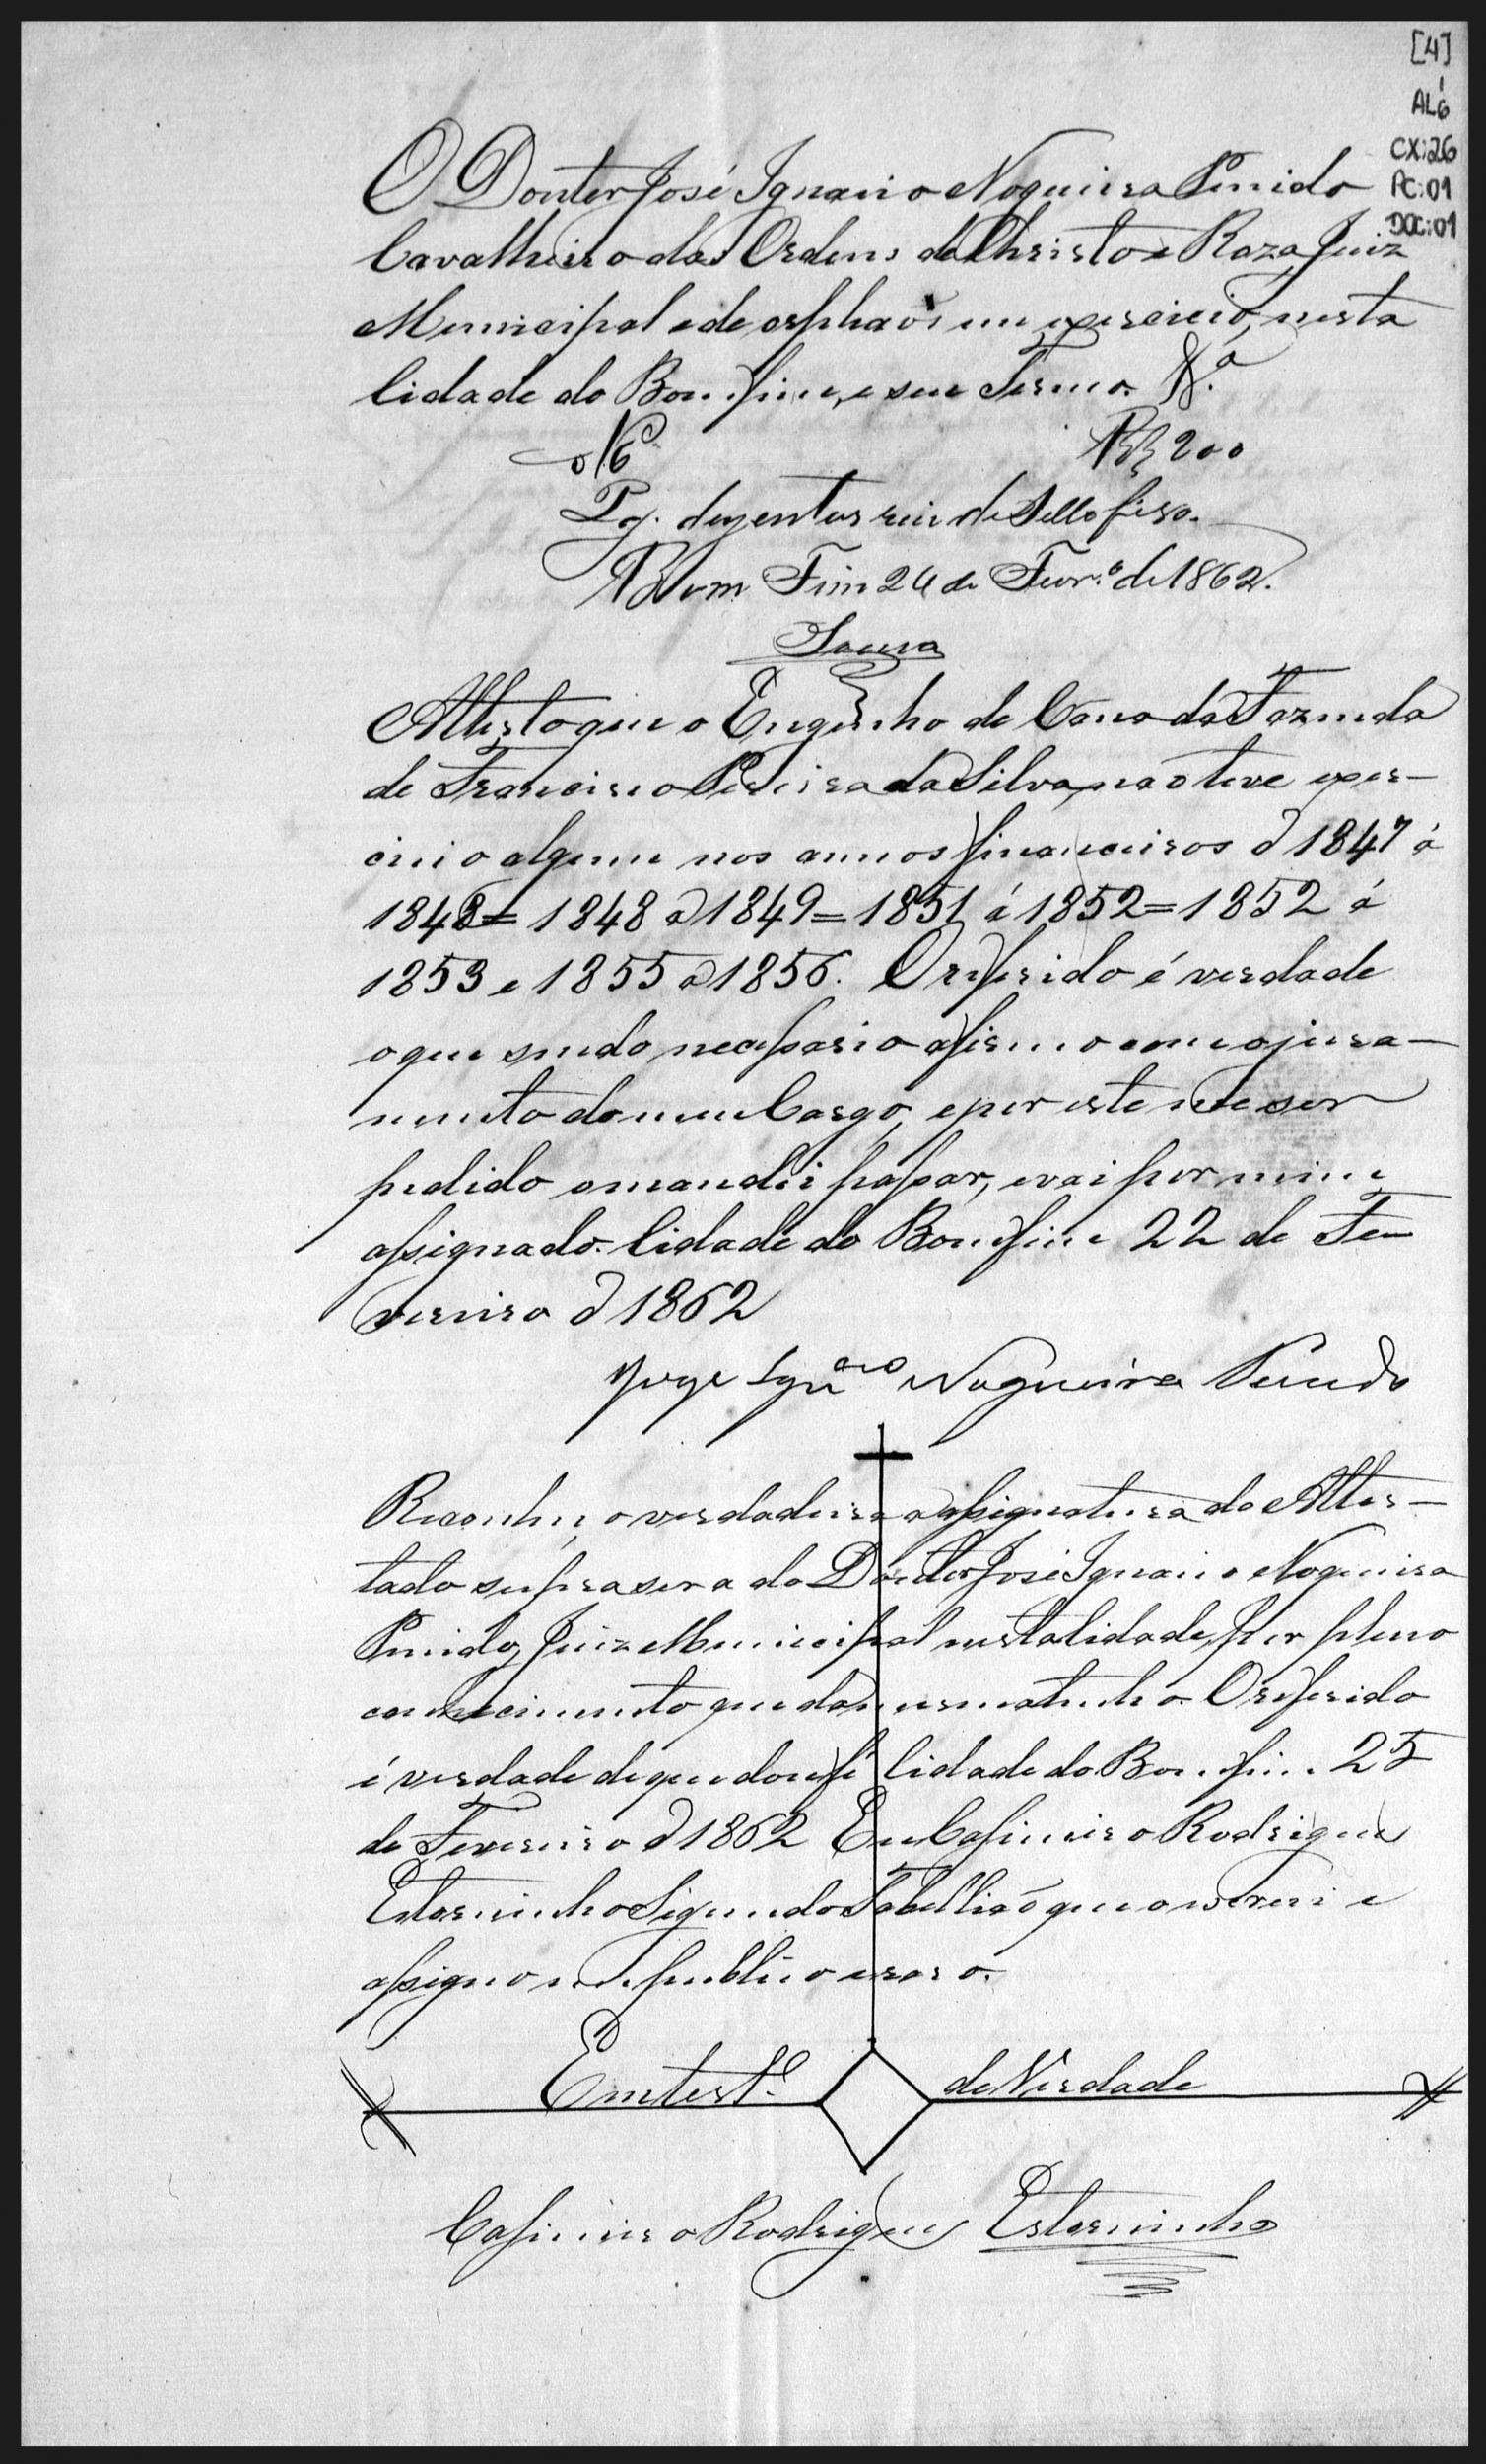 [4]
AL6
CX:26
PC:01
DOC:01
O Doutor José Ignacio Nogueira Penido
Cavalheiro das Ordens de Christo e Roza, Juiz
Municipal e de orphaõs em exercicio, nesta
Cidade do Bomfim, e seu Termo. &.ª
Nº 6 Rs 200
Pg. duzentos reis de Sello fixo.
Bom Fim 24 de Fevr.º de 1862.
Souza
Attesto que o Engenho de Cana da Fazenda
de Francisco Pereira da Silva, não teve exer-
cicio algum nos annos financeiros d 1847 á
1848= 1848 a 1849= 1851 á 1852= 1852 á
1853 e 1855 a 1856. O referido é verdade
o que sendo necessario afirmo com o jura-
mento do meu Cargo, e por este me ser
pedido o mandei passar, e vai por mim
assignado. Cidade do Bomfim 22 de Fe
vereiro d 1862
Joze Ign.acio Nogueira Penido
Reconheço verdadeira a assignatura do Attes-
tado supra ser a do Doutor José Ignacio Nogueira
Penido, Juiz Municipal nesta Cidade, por pleno
conhecimento que da mesma tenho. O referido
é verdade de que dou fé Cidade do Bomfim 25
de Fevereiro d 1862 Eu Casimiro Rodrigues
Estorninho Segundo Tabelliaõ que o escrevi e
assigno em publico e raso.
Em test.º de Verdade
Casimiro Rodrigues Estorninho